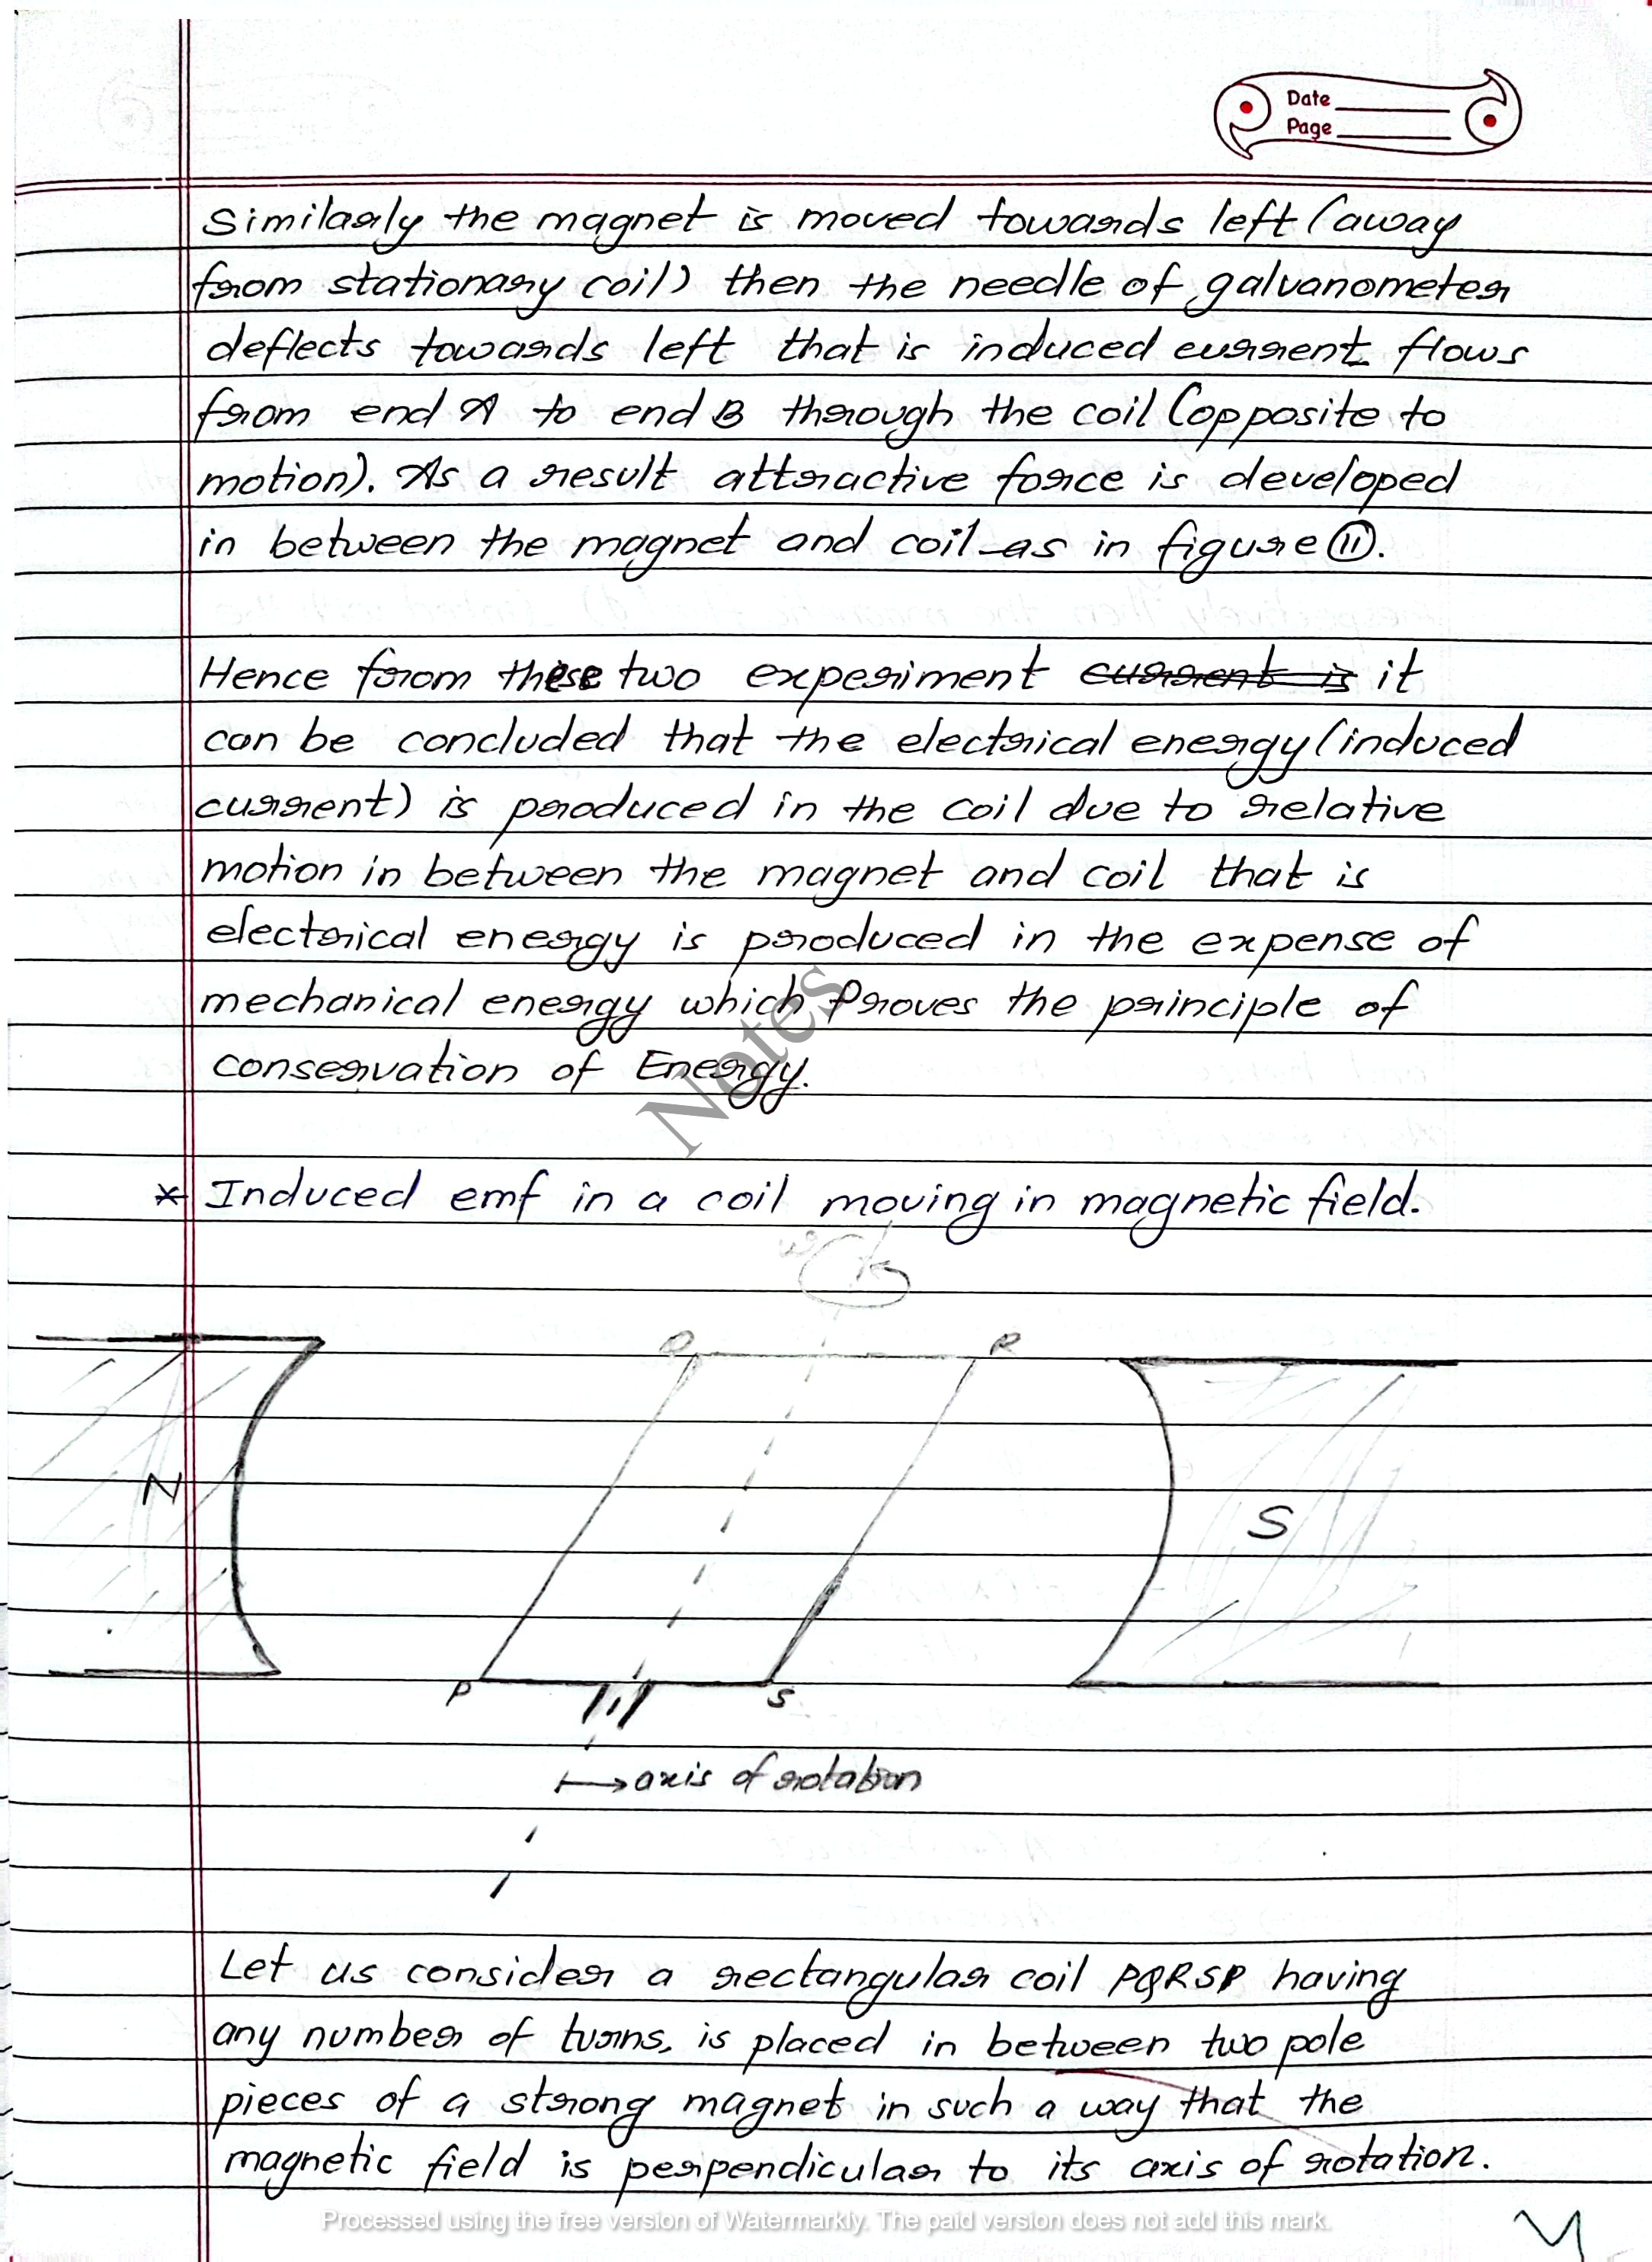 Date
Page
Similarly the magnet is moved towards left (away
from stationary coil) then the needle of galvanometer
deflects towards left that is induced current flows
from end A to end B through the coil (opposite to
motion). As a result attractive force is developed
in between the magnet and coil as in figure (ii).
Hence from these two experiment current is it
can be concluded that the electrical energy (induced
current) is produced in the coil due to relative
motion in between the magnet and coil that is
electrical energy is produced in the expense of
mechanical energy which Proves the principle of
conservation of Energy.
Notes
* Induced emf in a coil moving in magnetic field.
ω
Q R
N
S
P S
axis of rotation
Let us consider a rectangular coil PQRSP having
any number of turns, is placed in between two pole
pieces of a strong magnet in such a way that the
magnetic field is perpendicular to its axis of rotation.
Processed using the free version of Watermarkly. The paid version does not add this mark.